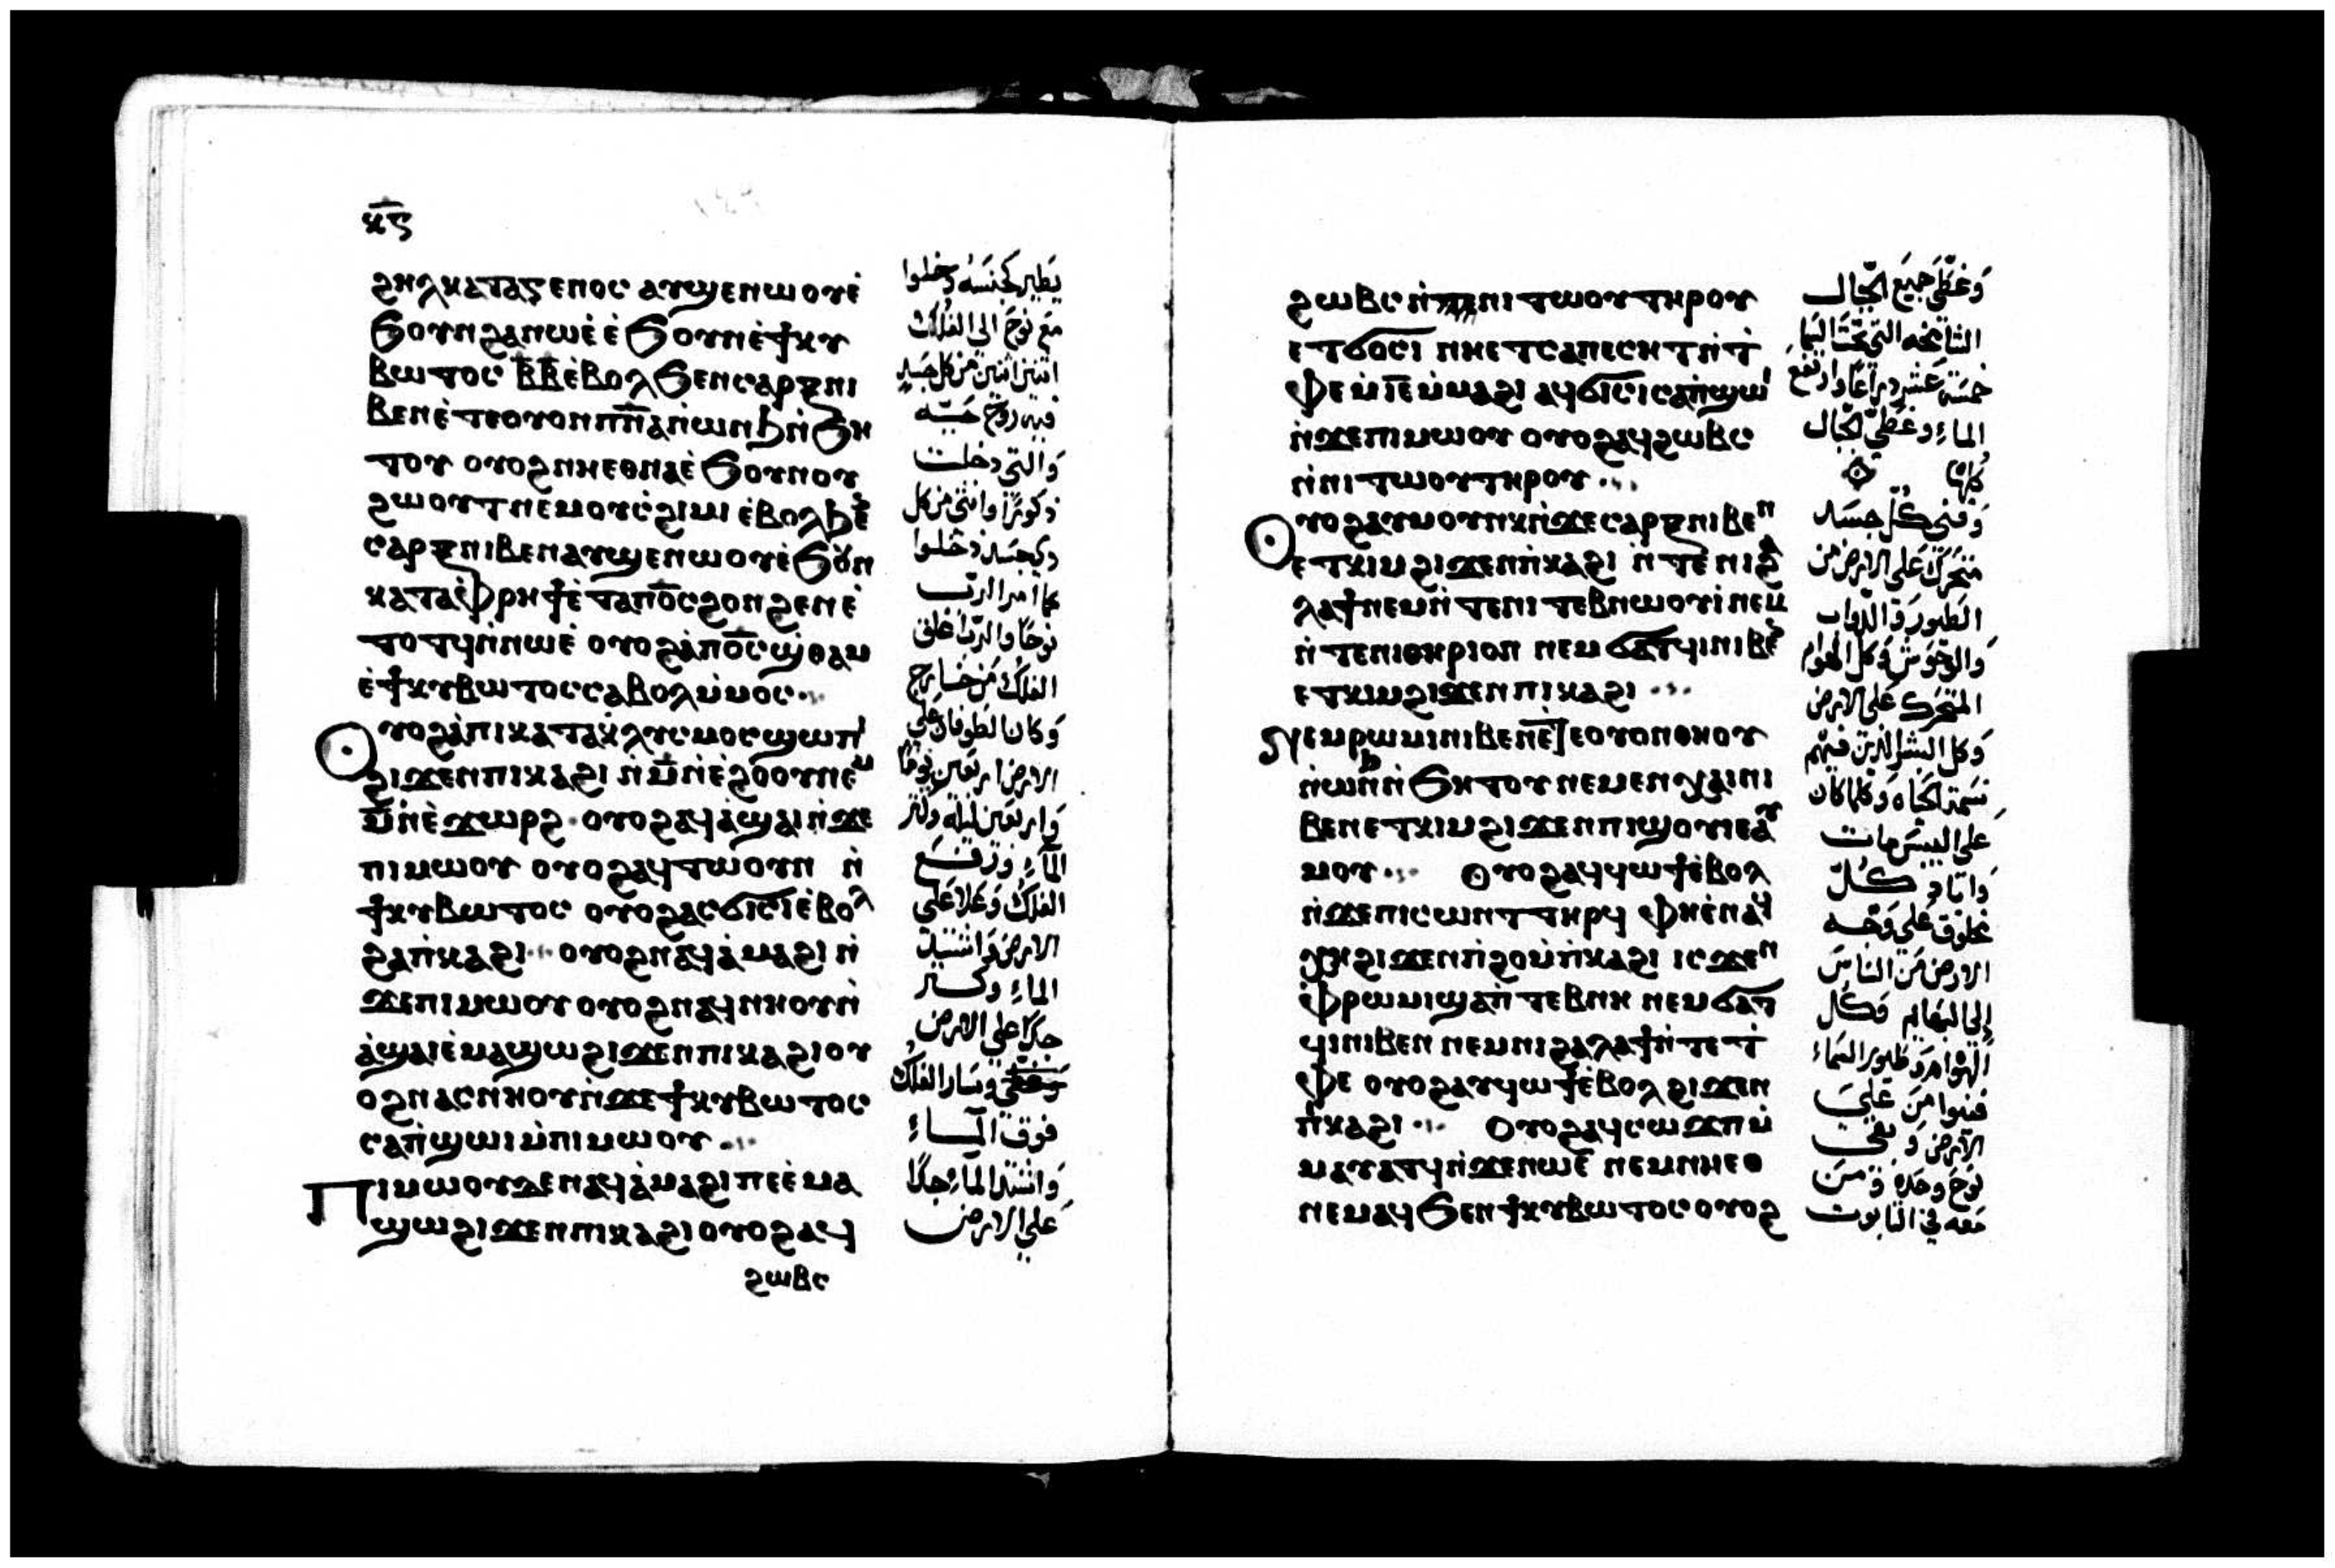 ⲕ̅ⲋ
ϩⲏⲗ ⲕⲁⲧⲁ ⲅⲉⲛⲟⲥ ⲁⲩϣⲉⲛⲱⲟⲩⲉ̀
ϧⲟⲩⲛ ϩⲁ ⲛⲱⲉ̀ ⲉ̀ϧⲟⲩⲛ ⲉ̀ϯⲕⲩ
ⲃⲱⲧⲟⲥ ⲃ̅ⲃ̅ ⲉ̀ⲃⲟⲗ ϧⲉⲛ ⲥⲁⲣⲝ ⲛⲓ
ⲃⲉⲛ ⲉ̀ⲧⲉ ⲟⲩⲟⲛ ⲡ̅ⲛ̅ⲁ̅ ⲛ̀ⲱⲛϧ ⲛ̀ϧⲏ
ⲧⲟⲩ ⲟⲩⲟϩ ⲛⲏⲉⲑⲛⲁⲉ̀ϧⲟⲩⲛ ⲟⲩ
ϩⲱⲟⲩⲧ ⲛⲉⲙ ⲟⲩⲥ̀ϩⲓⲙⲓ ⲉ̀ⲃⲟⲗ ϧⲉ̅
ⲥⲁⲣⲝ ⲛⲓⲃⲉⲛ ⲁⲩϣⲉⲛⲱⲟⲩ ⲉ̀ϧⲟⲩⲛ
ⲕⲁⲧⲁ ⲫ̀ⲣⲏϯ ⲉ̀ⲧⲁ ⲡⲟ̅ⲥ̅ ϩⲟⲛϩⲉⲛ ⲉ̀
ⲧⲟⲧϥ ⲛ̀ⲛⲱⲉ̀ ⲟⲩⲟϩ ⲁ̀ ⲡⲟ̅ⲥ̅ ϣ̀ⲑⲁⲙ
ⲉ̀ϯⲕⲩⲃⲱⲧⲟⲥ ⲥⲁⲃⲟⲗ ⲙ̀ⲙⲟⲥ
ⲟⲩⲟϩ ⲁ̀ ⲡⲓⲕⲁⲧⲁⲕ̀ⲗⲩⲥⲙⲟⲥ ϣⲱⲡⲓ
ϩⲓϫⲉⲛ ⲡⲓⲕⲁϩⲓ ⲛ̀ⲙ̅ ⲛ̀ⲉ̀ϩⲟⲟⲩ ⲛⲉⲙ
ⲙ̅ ⲛ̀ⲉ̀ϫⲱⲣϩ ⲟⲩⲟϩ ⲁϥⲁ̀ϣⲁⲓ ⲛ̀ϫⲉ
ⲡⲓⲙⲱⲟⲩ ⲟⲩⲟϩ ⲁϥⲧⲱⲟⲩⲛ ⲛ̀
ϯⲕⲩⲃⲱⲧⲟⲥ ⲟⲩⲟϩ ⲁⲥϭⲓⲥⲓ ⲉ̀ⲃⲟⲗ
ϩⲁ ⲡ̀ⲕⲁϩⲓ ⲟⲩⲟϩ ⲛⲁϥⲁ̀ⲙⲁϩⲓ ⲛ̀
ϫⲉ ⲡⲓⲙⲱⲟⲩ ⲟⲩⲟϩ ⲛⲁϥⲛⲏⲟⲩ ⲛ̀
ⲁ̀ϣⲁⲓ ⲉ̀ⲙⲁϣⲱ ϩⲓϫⲉⲛ ⲡⲓⲕⲁϩⲓ ⲟⲩ
ⲟϩ ⲛⲁⲥⲛⲏⲟⲩ ⲛ̀ϫⲉ ϯⲕⲩⲃⲱⲧⲟⲥ
ⲥⲁⲡ̀ϣⲱⲓ ⲙ̀ⲡⲓⲙⲱⲟⲩ
Ⲡⲓⲙⲱⲟⲩ ϫⲉ ⲛⲁϥⲁ̀ⲙⲁϩⲓ ⲡⲉ ⲉ̀ⲙⲁ
ϣⲱ ϩⲓϫⲉⲛ ⲡⲓⲕⲁϩⲓ ⲟⲩⲟϩ ⲁϥ
ϩⲱⲃⲥ
يطير كجنسه ودخلوا
مع نوح الى الفلك
اثنين اثنين من كل جسد
فيه روح حيه
والتى دخلت
ذكورًا وانثى من كل
ذى جسد دخلوا
كما امر الرب
نوحًا والرب اغلق
الفلك من خارج
وكان الطوفان على
الارض اربعين يومًا
واربعين ليلة وكثر
الماء ورفع
الفلك وعلا على
الارض واشتد
الماء وكثر
جدًا على الارض
وسار الفلك
فوق الماء
واشتد الماء جدًا
على الارض
ϩⲱⲃⲥ ⲛ̀ⲛⲓⲧⲱⲟⲩ ⲧⲏⲣⲟⲩ
ⲉⲧϭⲟⲥⲓ ⲛⲏⲉⲧⲥⲁⲡⲉⲥⲏⲧ ⲛ̀ⲧ̀
ⲫⲉ ⲙ̀ⲓ̅ⲉ̅ ⲙ̀ⲙⲁϩⲓ ⲁϥϭⲓⲥⲓ ⲥⲁⲡ̀ϣⲱⲓ
ⲛ̀ϫⲉ ⲡⲓⲙⲱⲟⲩ ⲟⲩⲟϩ ⲁϥϩⲱⲃⲥ
ⲛ̀ⲛⲓⲧⲱⲟⲩ ⲧⲏⲣⲟⲩ
ⲟⲩⲟϩ ⲁⲩⲙⲟⲩⲛⲕ ⲛ̀ϫⲉ ⲥⲁⲣⲝ ⲛⲓⲃⲉⲛ
ⲉⲧⲕⲓⲙ ϩⲓϫⲉⲛ ⲡ̀ⲕⲁϩⲓ ⲛ̀ⲧⲉ ⲛⲓϩⲁ
ⲗⲁϯ ⲛⲉⲙ ⲛ̀ⲧⲉ ⲛⲓⲧⲉⲃⲛⲱⲟⲩⲓ̀ ⲛⲉⲙ
ⲛ̀ⲧⲉ ⲛⲓⲑⲏⲣⲓⲟⲛ ⲛⲉⲙ ϭⲁⲧϥⲓ ⲛⲓⲃⲉ̅
ⲉⲧⲕⲓⲙ ϩⲓϫⲉⲛ ⲡⲓⲕⲁϩⲓ
Ⲛⲉⲙ ⲣⲱⲙⲓ ⲛⲓⲃⲉⲛ ⲉ̀ⲧⲉ ⲟⲩⲟⲛ ⲑⲏⲟⲩ
ⲛ̀ⲱⲛϧ ⲛ̀ϧⲏⲧⲟⲩ ⲛⲉⲙ ⲉⲛⲭⲁⲓ ⲛⲓ
ⲃⲉⲛ ⲉⲧⲕⲓⲙ ϩⲓϫⲉⲛ ⲡⲓϣⲟⲩⲓⲉ ⲁⲩ
ⲙⲟⲩ ⲟⲩⲟϩ ⲁϥϥⲱϯ ⲉ̀ⲃⲟⲗ
ⲛ̀ϫⲉ ⲡⲓⲥⲱⲛⲧ ⲧⲏⲣϥ ⲫⲏ ⲉ̀ⲛⲁϥ
ⲭⲏ ϩⲓϫⲉⲛ ⲡ̀ϩⲟ ⲙ̀ⲡ̀ⲕⲁϩⲓ ⲓⲥϫⲉⲛ
ⲫ̀ⲣⲱⲙⲓ ϣⲁ ⲡ̀ⲧⲉⲃⲛⲏ ⲛⲉⲙ ϭⲁⲧ
ϥⲓ ⲛⲓⲃⲉⲛ ⲛⲉⲙ ⲛⲓϩⲁⲗⲁϯ ⲛ̀ⲧⲉ ⲧ̀
ⲫⲉ ⲟⲩⲟϩ ⲁⲩϥⲱϯ ⲉ̀ⲃⲟⲗ ϩⲓϫⲉⲛ
ⲡ̀ⲕⲁϩⲓ ⲟⲩⲟϩ ⲁϥⲥⲱϫⲡ ⲙ̀
ⲙⲁⲩⲁⲧϥ ⲛ̀ϫⲉ ⲛⲱⲉ̀ ⲛⲉⲙ ⲛⲏⲉⲑ
ⲛⲉⲙⲁϥ ϧⲉⲛ ϯⲕⲩⲃⲱⲧⲟⲥ ⲟⲩⲟϩ
وغطى جميع الجبال
الشامخه التى تحت السما
خمسة عشر ذراعًا وارتفع
الماء وغطى الجبال
كلها
وفنى كل جسد
متحرك على الارض من
الطيور والدواب
والوحوش وكل الهوام
المتحرك على الارض
وكل البشر الذين فيهم
نسمة الحياه وكلما كان
على اليبس مات
واباد كل
مخلوق على وجه
الارض من الناس
الى البهايم وكل
الهوام وطيور السماء
فنيوا من على
الارض وبقى
نوح وحده ومن
معه فى التابوت